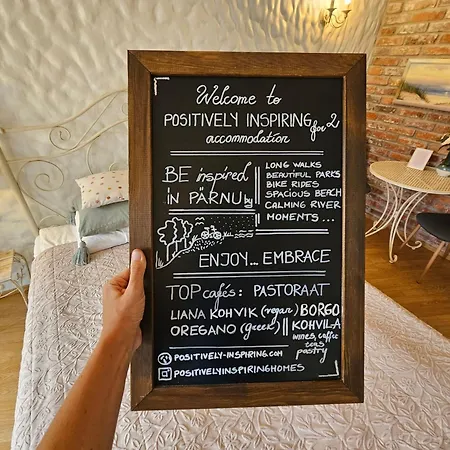 Welcome to
POSITIVELY INSPIRING
accommodation for 2
BE inspired
IN PÄRNU by
LONG WALKS
BEAUTIFUL PARKS
BIKE RIDES
SPACIOUS BEACH
CALMING RIVER
MOMENTS ...
ENJOY... EMBRACE
TOP cafés: PASTORAAT
LIANA KOHVIK (vegan) BORGO
OREGANO (greek) || KOHVILA
wines, coffee
pastry
POSITIVELY-INSPIRING.COM
POSITIVELYINSPIRINGHOMES